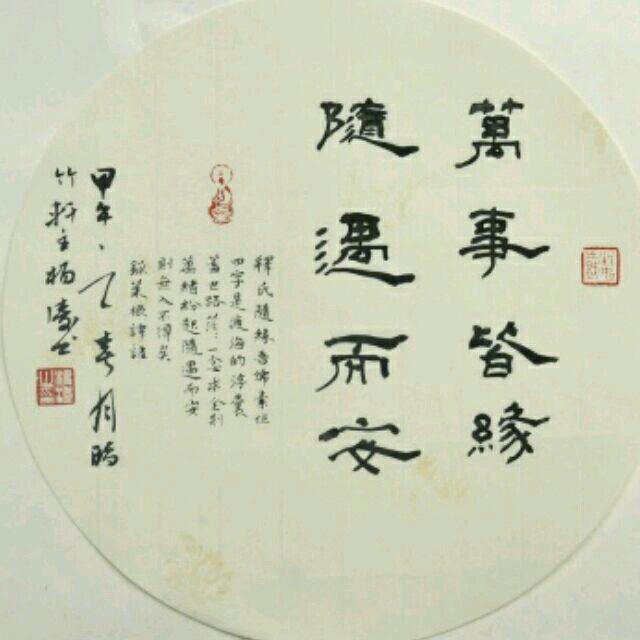 萬事皆緣
隨遇而安
釋氏隨緣吾儒素位
四字是渡海的浮囊
蓋世路茫茫一念求全則
萬緒紛起隨遇而安
則無入不得矣
錄菜根譚語
甲午 春月
竹軒主楊濤书